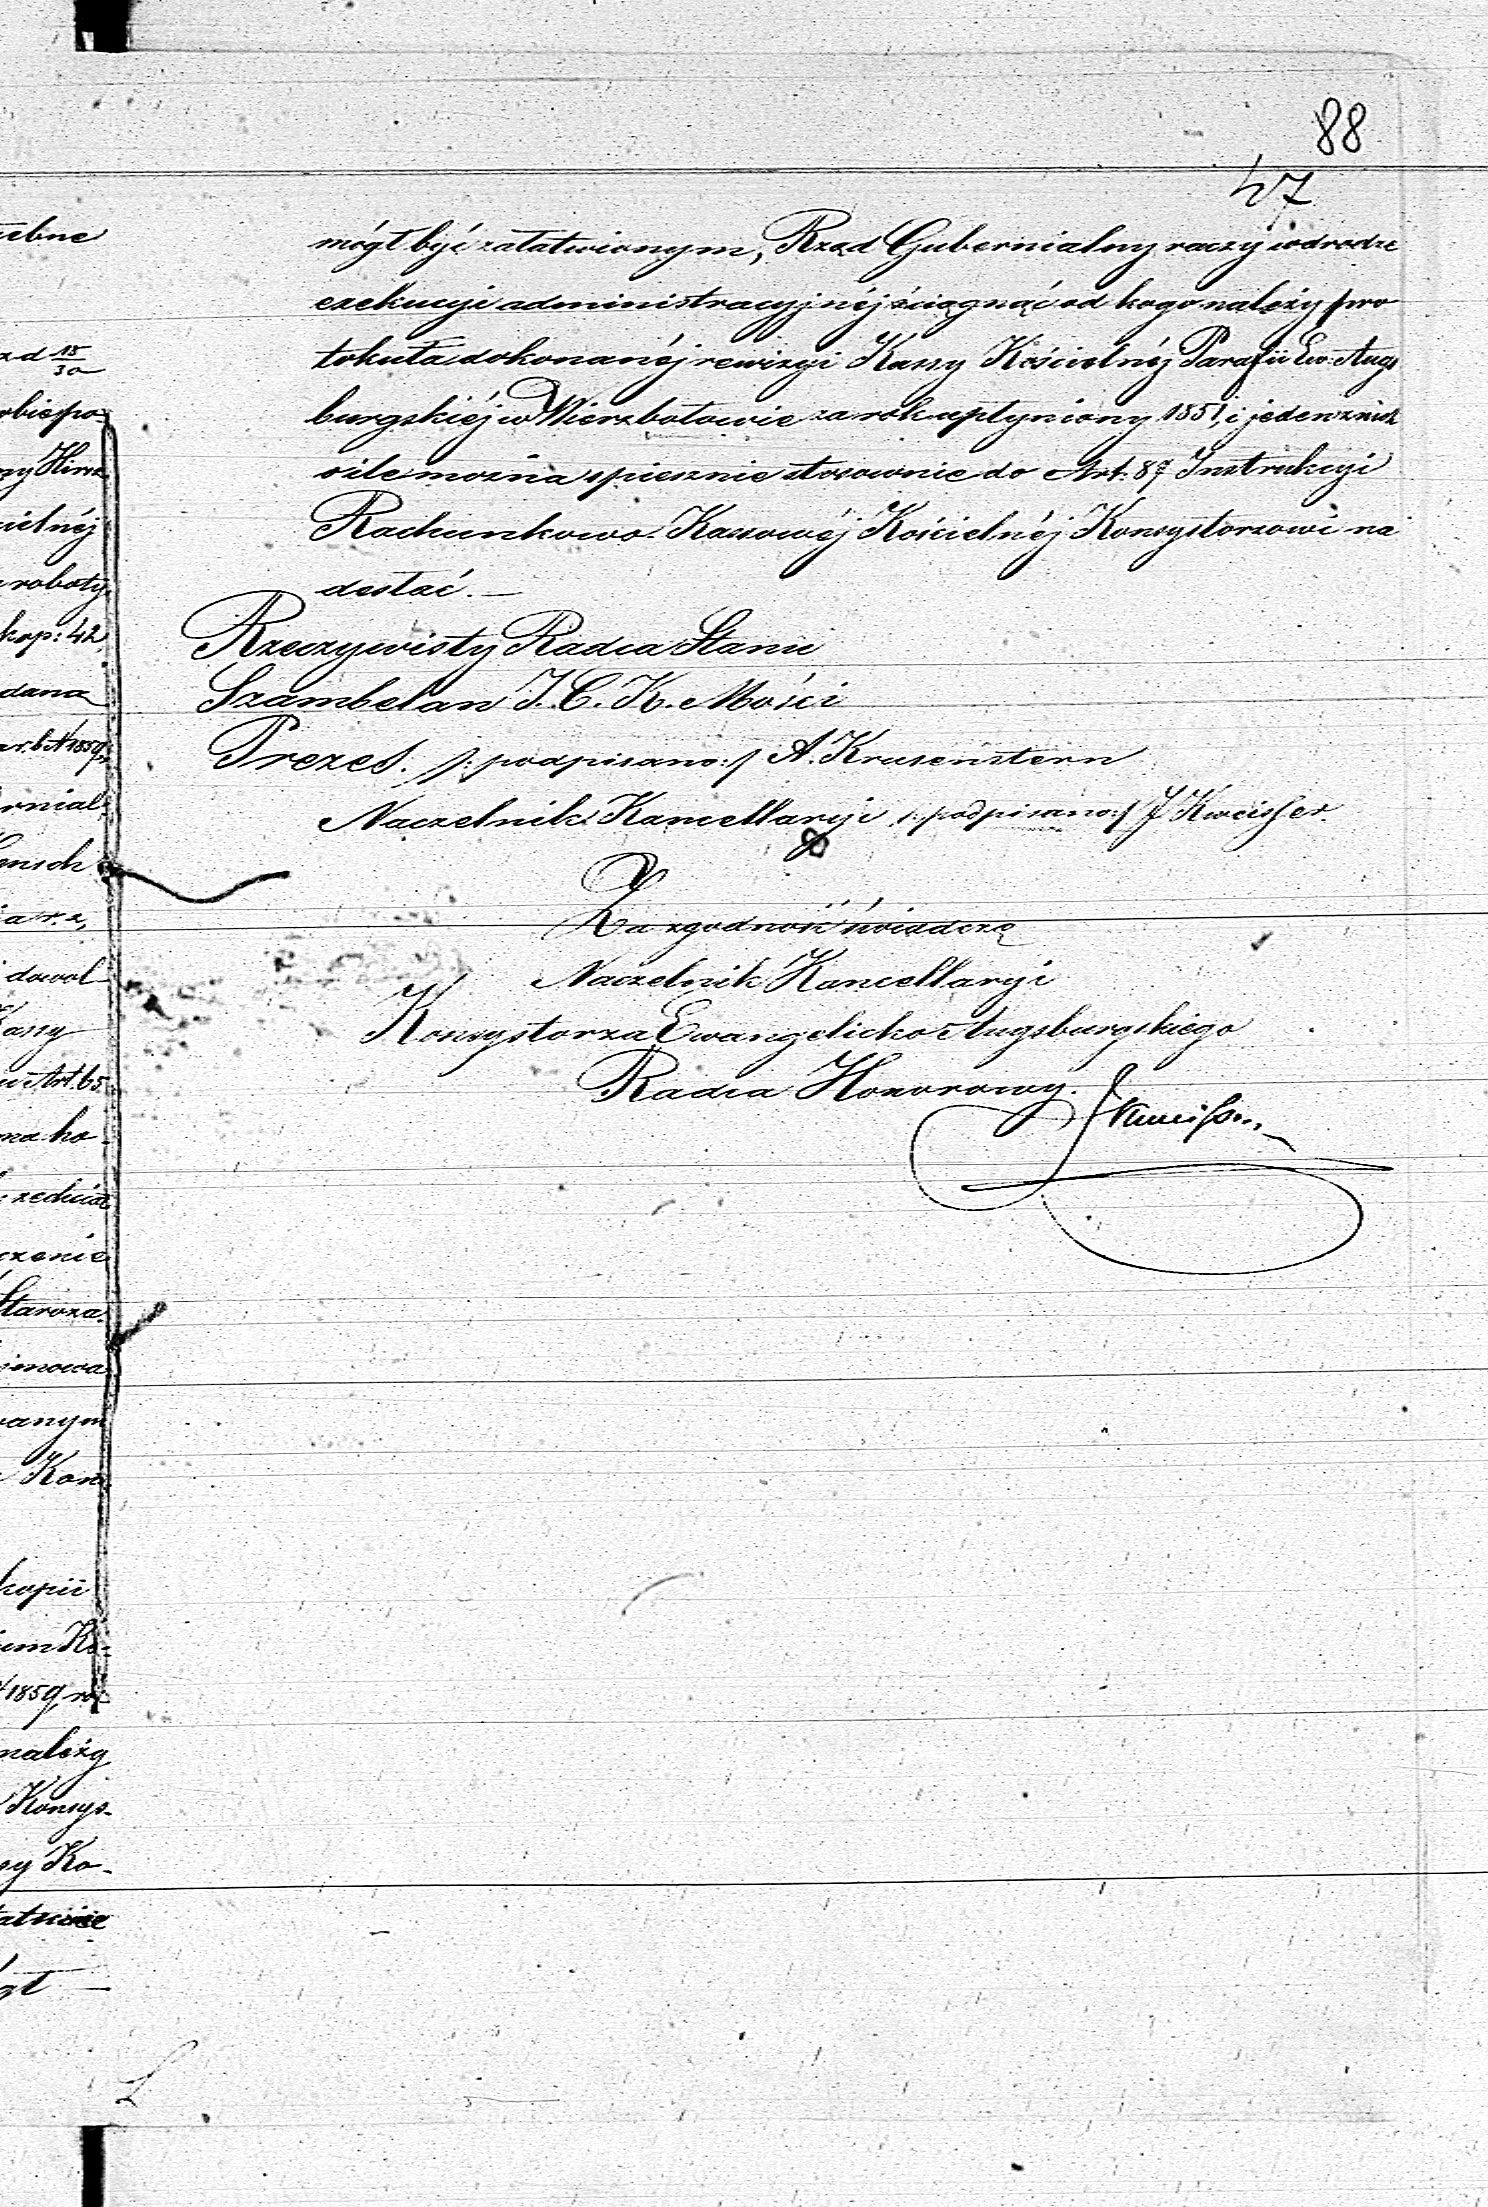 88
47
mógł być załatwionym, Rząd Gubernialny raczy w drodze
exekucyi administracyjnéj ściągnąć od kogo należy pro
tokuła dokonanéj rewizyi Kassy Kościelnéj Parafii Ew: Augs
burgskiéj w Wierzbołowie za rok upłyniony 1851, i jeden z nich
o ile można spiesznie stosownie do Art. 87 Instrukcyi
Rachunkowo Kassowéj Kościelnéj Konsystorzowi na
desłać. —
Rzeczywisty Radca Stanu
Szambelan J. C. K. Mości
Prezes. /: podpisano :/ A. Krusenstern
Naczelnik Kancellaryi /: podpisano :/ J Kweisser.
Za zgodność świadczę
Naczelnik Kancellaryi
Konsystorza Ewangelicko Augsburgskiego
Radca Honorowy.
Kweisser
ebne
zd 18/30
obie po=
zy Hirsz
cielnéj
roboty
kop: 42
dana
1859
rnial=
ensch
a r. z,
dowol
Kassy
Art. 65
na ko=
czenie
Staroza=
jmowa
wanym
Kon=
kopii
um Ko=
1859
należy
Konsys-
sy Ko-
gł —